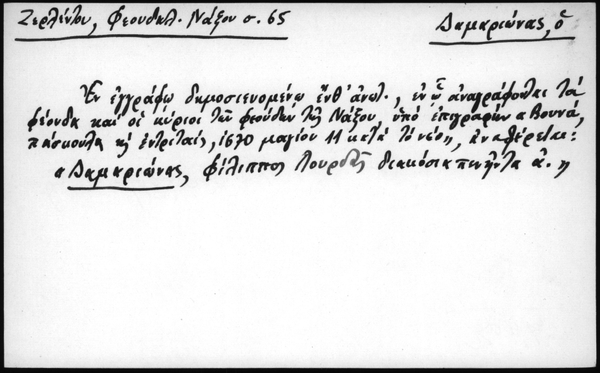 Ζερλέντου, Φεουδαλ. Νάξου σ. 65
Δαμαριώνας, ὁ
Ἐν ἐγγράφῳ δημοσιευομένῳ ἔνθ' ἀνωτ., ἐν ᾧ ἀναγράφονται τά
φέουδα καί οἱ κύριοι τῶν φεούδων τῆς Νάξου, ὑπό ἐπιγραφήν « Βουνά,
πάσκουλα κῃ ἐντρίταις, 1670 μαγίου 11 κατά τό νέο», ἀναφέρεται:
« Δαμαριώνας, φίλιππος Γουρδᾶς διακόσια πενῆντα ἀ. »